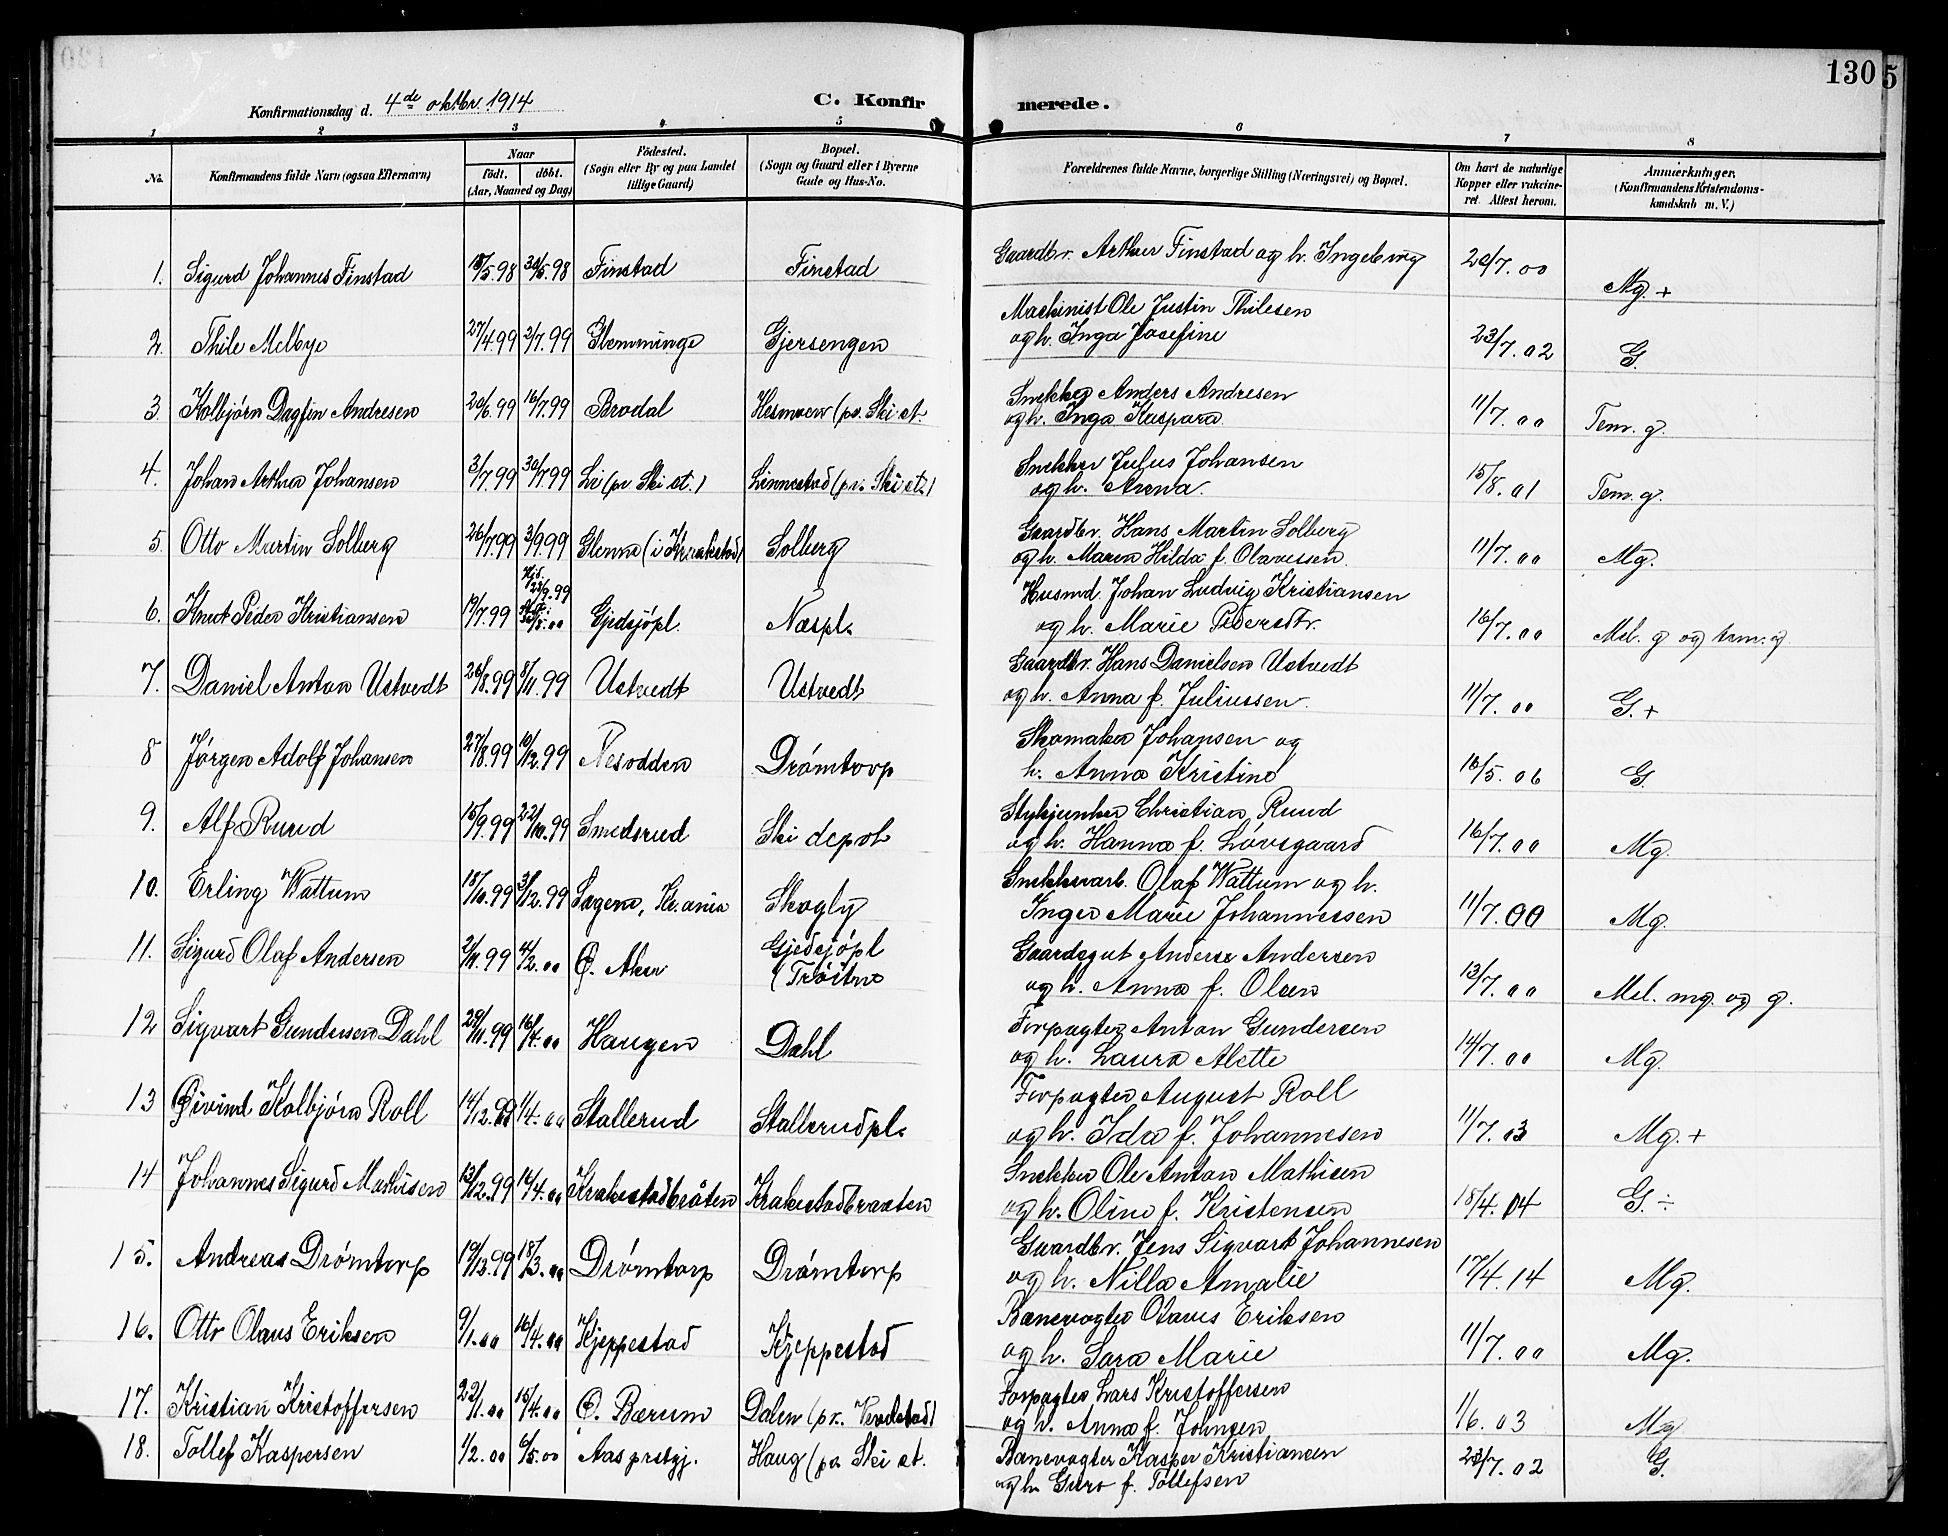 130 5
Konfirmationsdag d. 4de oktbr. 1914 C. Konfirmerede.
1 2 3 4 5 6 7 8
No. Konfirmandens fulde Navn (ogsaa Efternavn) Naar födt. döbt. (Aar, Maaned og Dag) Födested. (Sogn eller By og paa Landet tillige Gaard) Bopæl. (Sogn og Gaard eller i Byerne Gade og Hus-No. Forældrenes fulde Navne, borgerlige Stilling (Næringsvei) og Bopæl. Om havt de naturlige Kopper eller vakcineret. Attest herom. Anmærkninger. (Konfirmandens Kristendomskundskab m. V.)
1. Sigurd Johannes Finstad 18/5.98 30/5.98 Finstad Finstad Gaardbr. Arthur Finstad og h. Ingeborg 20/7.00 Mg. +
2. Thile Melbye 27/4.99 2/7.99 Glemminge Gjersengen Maskinist Ole Justin Thilesen
og h. Inga Josefine 23/7.02 G.
3. Kolbjörn Dagfin Andresen 20/6.99 16/7.99 Brodal Hesmoen (pr. Ski st. Snekker Anders Andresen
og h. Inga Kaspara 11/7.00 Tem. g.
4. Johan Arthur Johansen 3/7.99 30/7.99 Li (pr Ski st.) Linnestad (pr. Ski st.) Snekker Julius Johansen
og h. Anna. 15/8.01 Tem. g.
5. Otto Martin Solberg 26/7.99 3/9.99 Glenna (i Kraakstad) Solberg Gaardbr. Hans Martin Solberg
og h. Maren Hilda f. Olavessen. 11/7.00 Mg.
6. Knut Peder Kristiansen 19/7.99 Hjd. 22/9.99 Gjedsjöpl. Næspl. Husmd. Johan Ludvig Kristiansen
og h. Marie Pedersdtr. 16/7.00 Mel. g og tem. g
7. Daniel Anton Ustvedt 26/8.99 5/11.99 Ustvedt Ustvedt Gaardbr. Hans Danielsen Ustvedt
og h. Anna f. Juliussen. 11/7.00 G. +
8 Jørgen Adolf Johansen 27/8.99 10/12.99 Nesodden Drömtorp Skomaker Johansen og
h. Anna Kristine 16/5.06 G.
9. Alf Ruud 15/9.99 22/10.99 Smedsrud Ski depot Stykjunker Christian Ruud
og h. Hanna f. Lövsgaard 16/7.00 Mg.
10. Erling Wattum 18/10.99 31/12.99 Sagene, Kr.ania Skogly Snekkerarb. Olaf Wattum og h.
Inger Marie Johannessen 11/7.00 Mg.
11. Sigurd Olaf Andersen 2/11.99 4/2.00 Ö. Aker Gjedsjöpl
(Tröitne Gaardsgut Anders Andersen
og h. Anna f. Olsen 13/7.00 Mel. mg. og g.
12 Sigvart Gundersen Dahl 29/11.99 16/4.00 Haugen Dahl Forpagter Anton Gundersen
og h. Laura Alette 14/7.00 Mg.
13 Öivind Kolbjörn Roll 14/12.99 1/4.00 Stallerud Stallerudpl. Forpagter August Roll
og h. Ida f. Johannesen 11/7.03 Mg. +
14 Johannes Sigurd Mathisen 13/12.99 16/4.00 Krakestadbråten Krakestadbraaten Snekker Ole Anton Mathisen
og h. Oline f. Kristensen 18/4.04 G. ÷
15. Andreas Drömtorp 19/12.99 18/3.00 Drömtorp Drömtorp Gaardbr. Jens Sigvart Johannesen
og h. Nilla Amalie 17/4.14 Mg.
16. Otto Olaus Eriksen 9/1.00 16/4.00 Kjeppestad Kjeppestad Banevogter Olaves Eriksen
og h. Sara Marie 11/7.00 Mg.
17. Kristian Kristoffersen 22/1.00 15/4.00 Ö. Bærum Dalen (pr. Vevelstad) Forpagter Lars Kristoffersen
og h. Anna f. Johnsen 1/6.03 Mg
18. Tollef Kaspersen 1/2.00 6/5.00 Aas prstgj. Haug (pr Ski st. Banevogter Kasper Kristiansen
og h Guro f. Tollefsen 23/7.02 G.